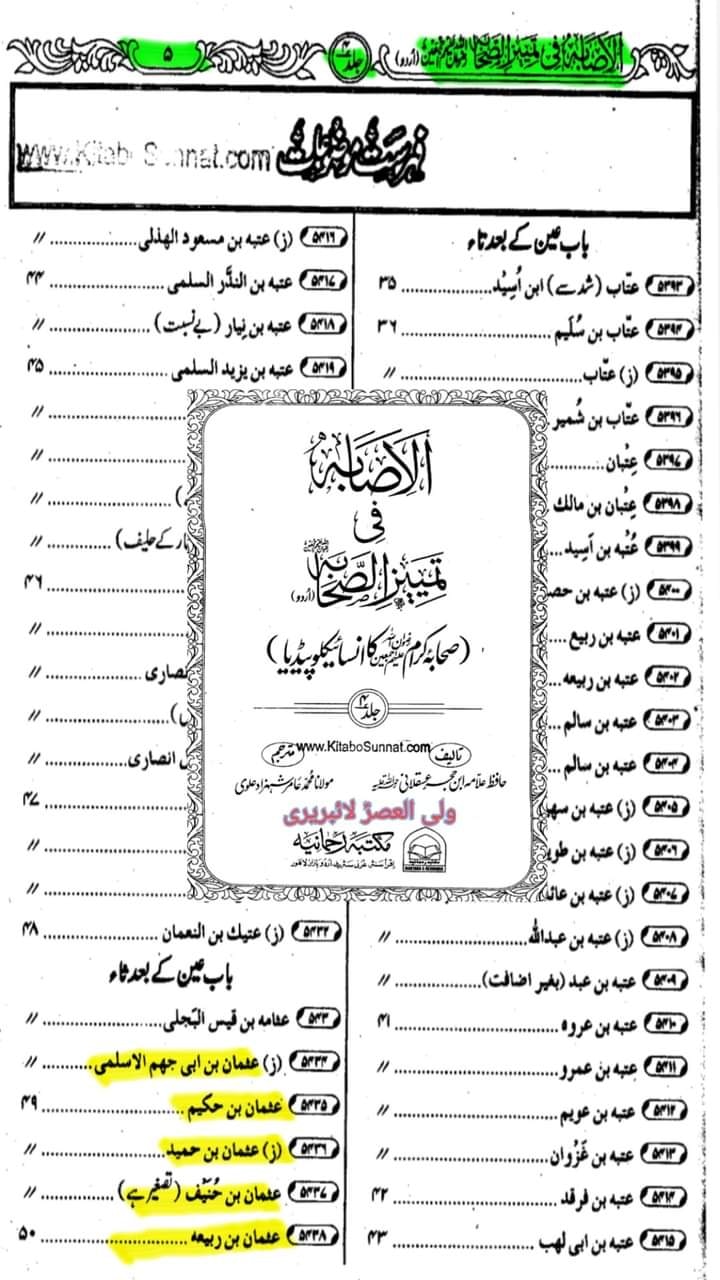 الاصابہ فی تمییز الصحابہ (اُردو) جلد ۴ ۵
فہرست موضوعات
www.KitaboSunnat.com
باب عین کے بعد تاء
۵۳۹۳ عتّاب (شد سے) ابن اُسِیْد ۳۵
۵۳۹۴ عتّاب بن سُلیم ۳۶
۵۳۹۵ (ز) عتّاب ״
۵۳۹۶ عتّاب بن شُمیر
۵۳۹۷ عِتْبان
۵۳۹۸ عِتْبان بن مالک
۵۳۹۹ عُتْبہ بن اَسِید
۵۴۰۰ (ز) عتبہ بن حصـ
۵۴۰۱ عتبہ بن ربیع
۵۴۰۲ عتبہ بن ربیعہ
۵۴۰۳ عتبہ بن سالم
۵۴۰۴ عتبہ بن سالم
۵۴۰۵ (ز) عتبہ بن سہو
۵۴۰۶ (ز) عتبہ بن طوی
۵۴۰۷ (ز) عتبہ بن عائذ
۵۴۰۸ (ز) عتبہ بن عبداللہ ״
۵۴۰۹ عتبہ بن عبد (بغیر اضافت) ״
۵۴۱۰ عتبہ بن عروہ ۴۱
۵۴۱۱ عتبہ بن عمرو ״
۵۴۱۲ عتبہ بن عویم ״
۵۴۱۳ عتبہ بن غَزْوان ״
۵۴۱۴ عتبہ بن فرقد ۴۲
۵۴۱۵ عتبہ بن ابی لھب ۴۳
۵۴۱۶ (ز) عتبہ بن مسعود الھذلی ״
۵۴۱۷ عتبہ بن النُدَّر السلمی ۴۴
۵۴۱۸ عتبہ بن نِیار (بے نسبت) ״
۵۴۱۹ عتبہ بن یزید السلمی ۴۵
״
״
) ״
ار کے حلیف) ״
۴۶
״
نصاری ״
) ״
انصاری ״
۴۷
״
״
۵۴۳۲ (ز) عتیك بن النعمان ۴۸
باب عین کے بعد ثاء
۵۴۳ عثامہ بن قیس البَجلی ״
۵۴۳۴ (ز) عثمان بن ابی جھم الاسلمی ״
۵۴۳۵ عثمان بن حکیم ۴۹
۵۴۳۶ (ز) عثمان بن حمید ״
۵۴۳۷ عثمان بن حُنَیْف (تصغیر ہے) ״
۵۴۳۸ عثمان بن ربیعہ ۵۰
الاصابہ
فی
تمییز الصحابہ (اُردو)
(صحابہ کرام رضوان اللہ علیہم اجمعین کا انسائیکلوپیڈیا)
جلد ۴
تالیف www.KitaboSunnat.com مترجم
حافظ علامہ ابن حجر عسقلانی رحمۃ اللہ علیہ مولانا محمد عامر شہزاد علوی
ولی العصرؑ لائبریری
مکتبہ رحمانیہ
اقرأ سنٹر غزنی سٹریٹ اردو بازار لاہور